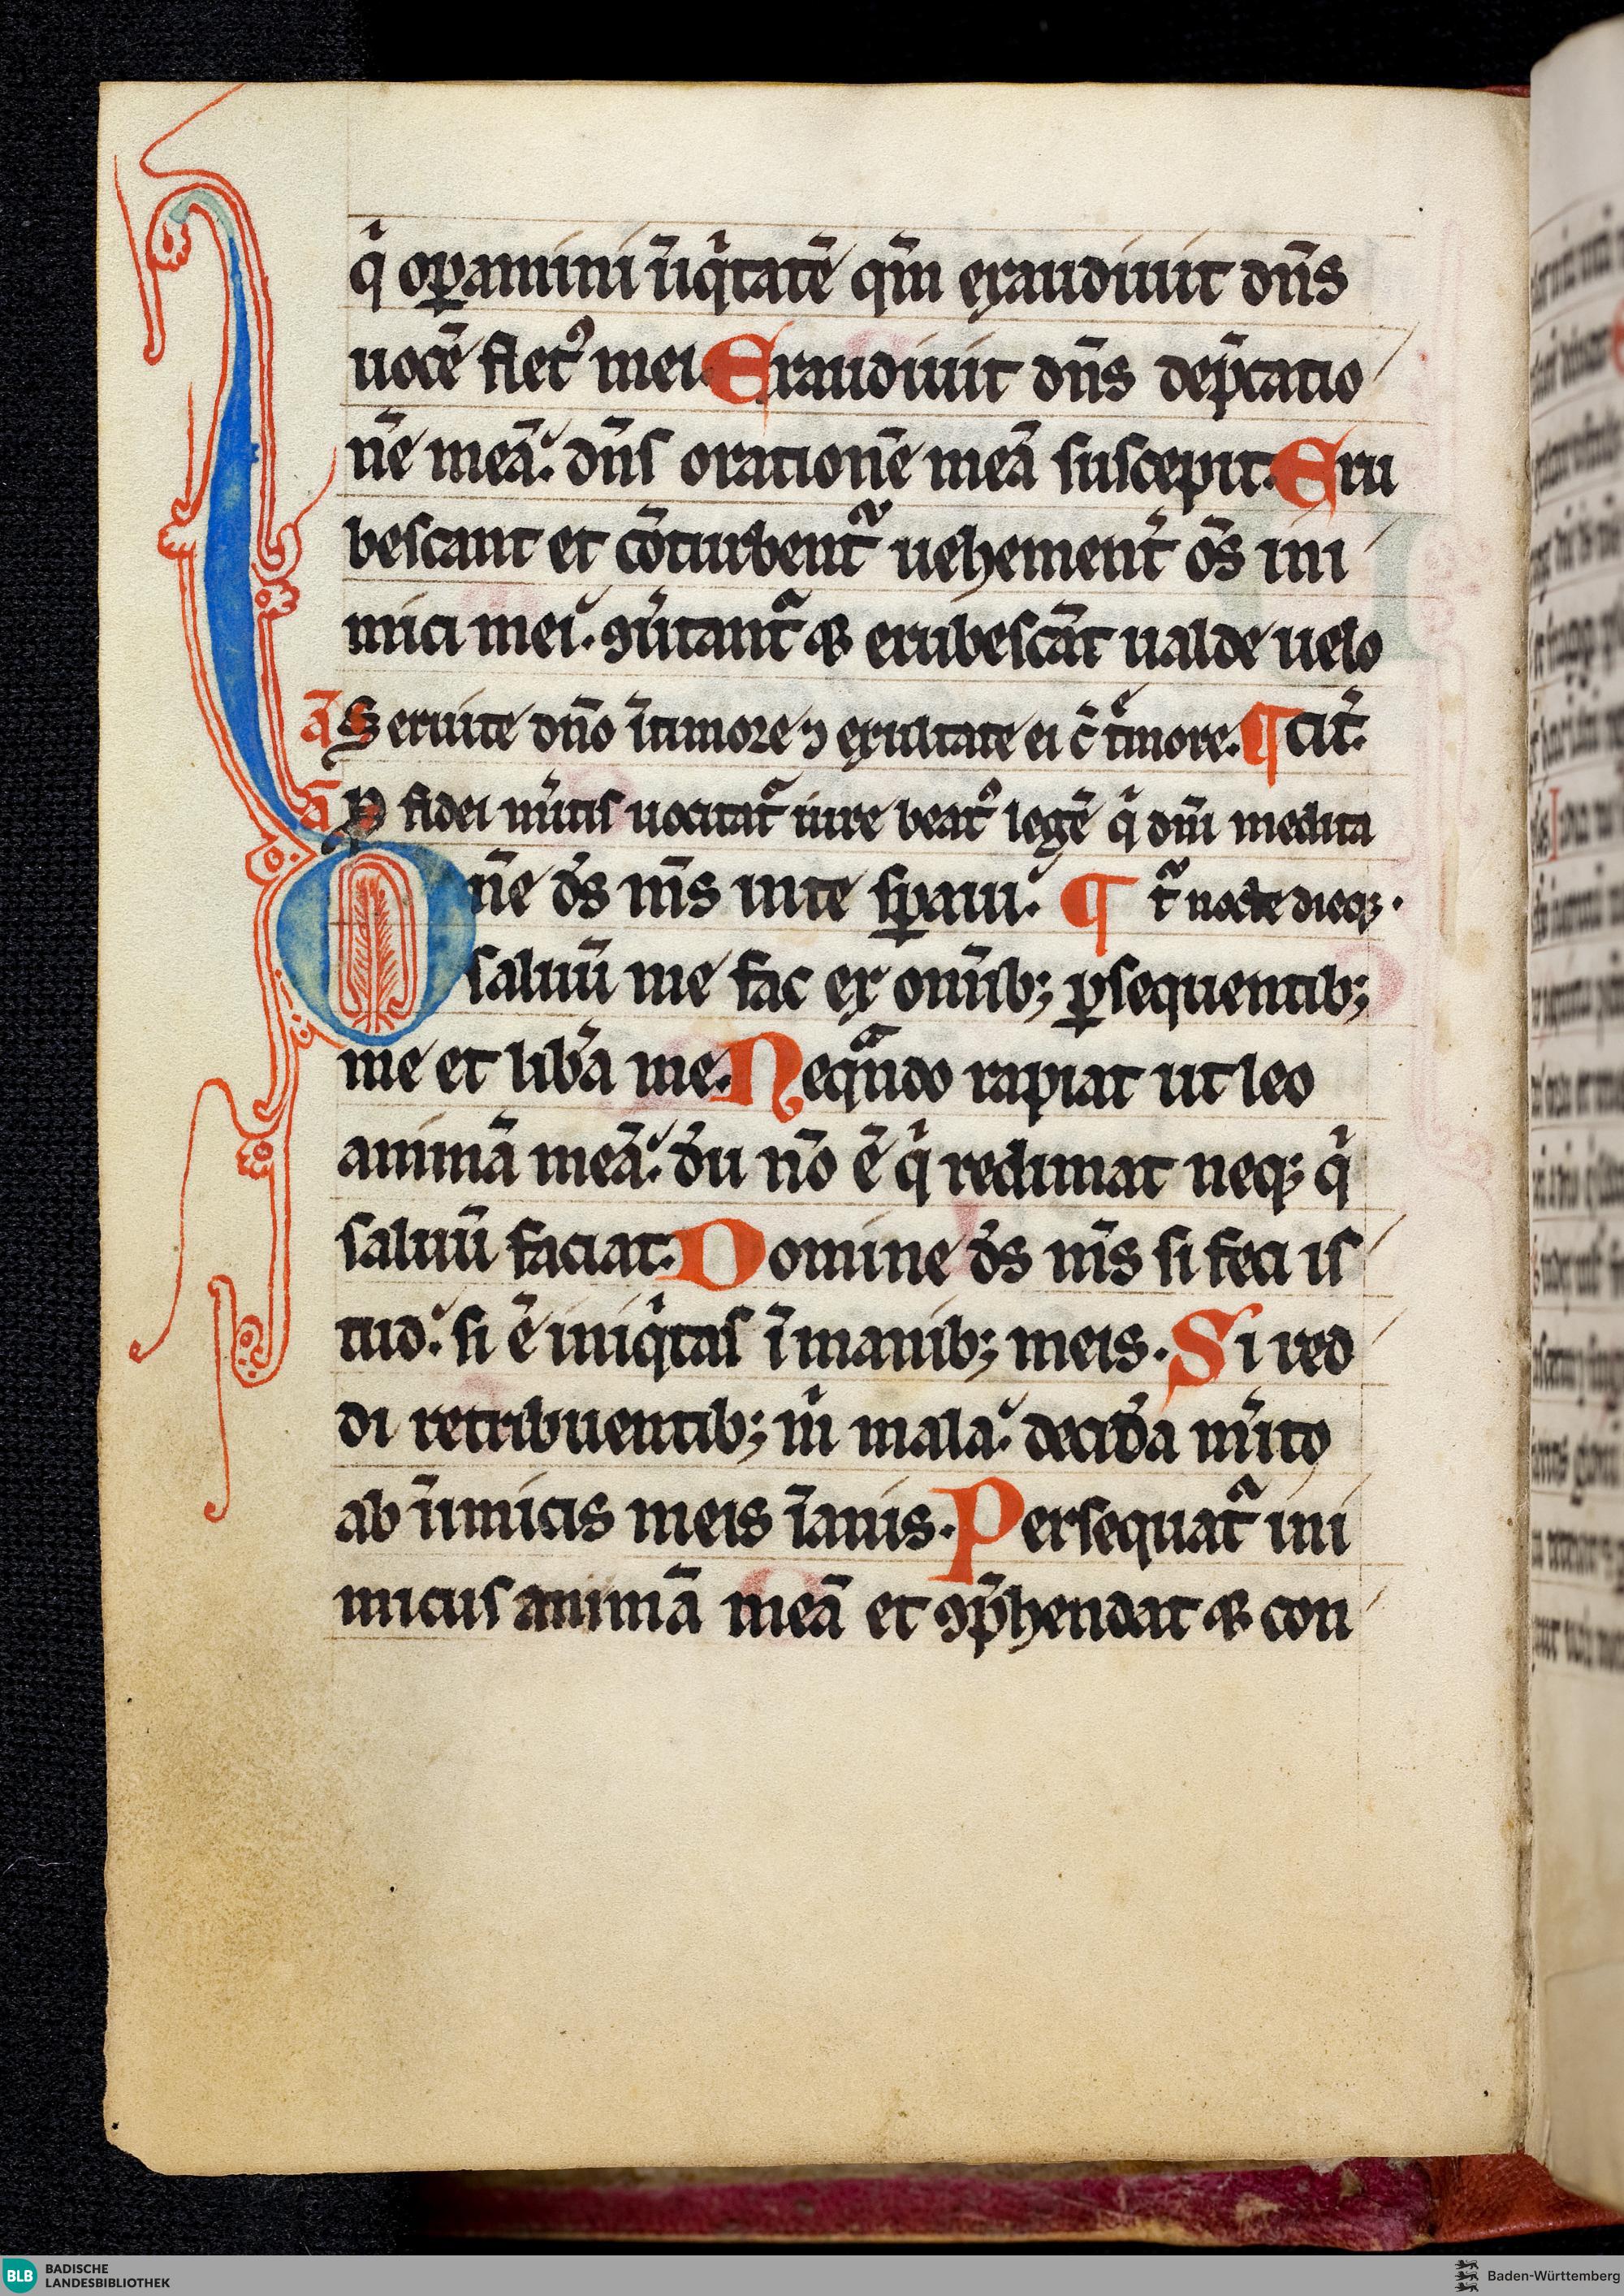 qͥ oꝑamini īiqͥtatē qm̄ exaudiuit dn̄s
uocē flet᷒ mei. Exaudiuit dn̄s dep̄catio
nē meā. dn̄s orationē meā suscepit. Eru
bescant et cōturbent᷑ uehement͛ om̄s ini
mici mei. ꝯu͛tant᷑ & erubescāt ualde uelo
ā Seruite dn̄o ī timore ⁊ exultate ei c̄ t͛more. ¶ cit͛.
ā P fidei m͛itis uocitat᷑ iure beat᷒ legē qͥ dn̄i medita
Dn̄e ds̄ ms̄ in te sꝑaui. ¶ t᷑ nocte dieqꝫ.
saluū me fac ex om̄ib; ꝑsequentib;
me et lib͛a me. Neqᷓndo rapiat ut leo
animā meā. dū nō ē qͥ redimat neqꝫ qͥ
saluū faciat. Domine ds̄ ms̄ si feci is
tud. si ē iniqͥtas ī manib; meis. Si red
di retribuentib; m̄ mala. decidā m͛ito
ab īimicis meis īanis. Persequat᷑ ini
micus animā meā et ꝯp̄hendat & con
BLB BADISCHE
LANDESBIBLIOTHEK
Baden-Württemberg